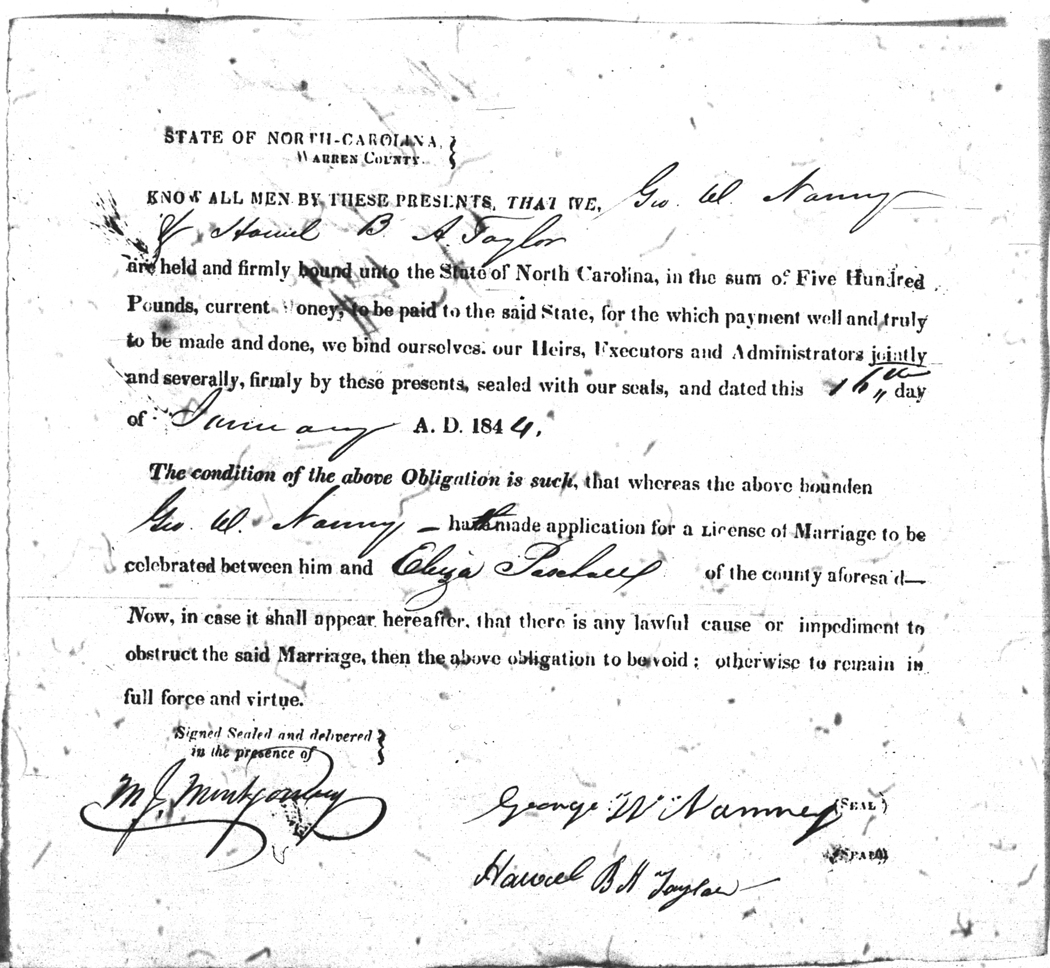 STATE OF NORTH-CAROLINA,
WARREN COUNTY.
KNOW ALL MEN BY THESE PRESENTS, THAT WE, Geo. W. Nanny
& Howel B. A. Taylor
are held and firmly bound unto the State of North Carolina, in the sum of Five Hundred
Pounds, current money, to be paid to the said State, for the which payment well and truly
to be made and done, we bind ourselves. our Heirs, Executors and Administrators jointly
and severally, firmly by these presents, sealed with our seals, and dated this 16th day
of January A. D. 1844.
The condition of the above Obligation is such, that whereas the above bounden
Geo. W. Nanny — hath made application for a License of Marriage to be
celebrated between him and Eliza Paschall of the county aforesa'd—
Now, in case it shall appear hereafter, that there is any lawful cause or impediment to
obstruct the said Marriage, then the above obligation to be void; otherwise to remain in
full force and virtue.
Signed Sealed and delivered
in the presence of
M J Montgomery
George W Nanney (SEAL)
(SEAL)
Howel B A Taylor